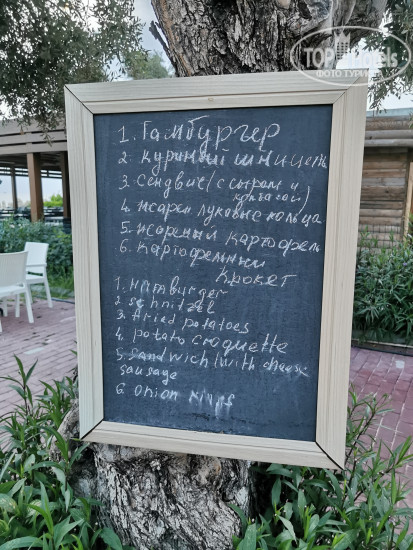 TOPHotels
ФОТО ТУРИСТА
1. Гамбургер
2 куриный шницель
3 Сендвич (с сыром и
колбасой)
4 жарен луковые кольца
5 жареный картофель
6. картофельный
крокет
1. Hamburger
2 schnitzel
3. fried potatoes
4. potato croquette
5. sandwich (with cheese
sausage
6 onion